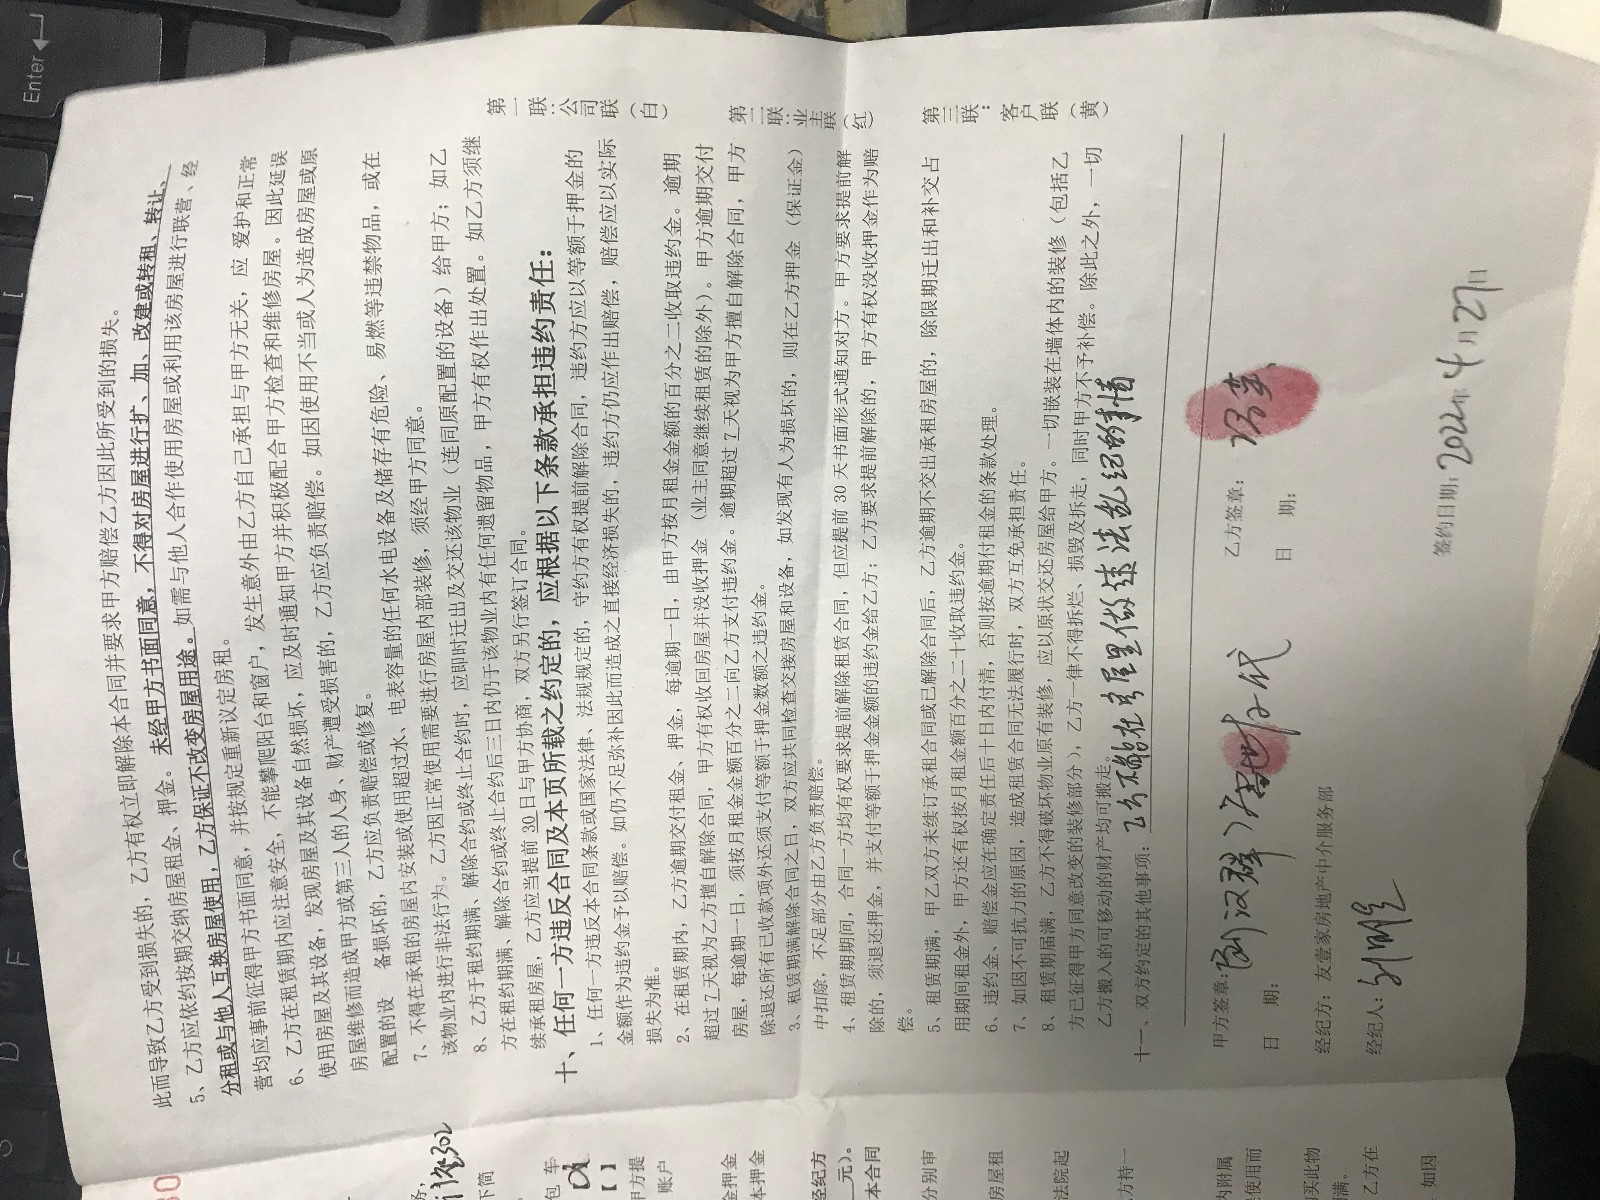 此而导致乙方受到损失的，乙方有权立即解除本合同并要求甲方赔偿乙方因此所受到的损失。
5、乙方应依约按期交纳房屋租金、押金。未经甲方书面同意，不得对房屋进行扩、加、改建或转租、转让、
分租或与他人互换房屋使用，乙方保证不改变房屋用途。如需与他人合作使用房屋或利用该房屋进行联营、经
营均应事前征得甲方书面同意，并按规定重新议定房租。
6、乙方在租赁期内应注意安全，不能攀爬阳台和窗户，发生意外由乙方自己承担与甲方无关，应 爱护和正常
使用房屋及其设备，发现房屋及其设备自然损坏，应及时通知甲方并积权配合甲方检查和维修房屋。因此延误
房屋维修而造成甲方或第三人的人身、财产遭受损害的，乙方应负责赔偿。如因使用不当或人为造成房屋或原
配置的设 备损坏的，乙方应负责赔偿或修复。
7、不得在承租的房屋内安装或使用超过水、电表容量的任何水电设备及储存有危险、易燃等违禁物品，或在
该物业内进行非法行为。乙方因正常使用需要进行房屋内部装修，须经甲方同意。
8、乙方于租约期满、解除合约或终止合约时，应即时迁出及交还该物业（连同原配置的设备）给甲方；如乙
方在租约期满、解除合约或终止合约后三日内仍于该物业内有任何遗留物品，甲方有权作出处置。如乙方须继
续承租房屋，乙方应当提前 30 日与甲方协商，双方另行签订合同。
十、任何一方违反合同及本页所载之约定的，应根据以下条款承担违约责任：
1、任何一方违反本合同条款或国家法律、法规规定的，守约方有权提前解除合同，违约方应以等额于押金的
金额作为违约金予以赔偿。如仍不足弥补因此而造成之直接经济损失的，违约方仍应作出赔偿，赔偿应以实际
损失为准。
2、在租赁期内，乙方逾期交付租金、押金，每逾期一日，由甲方按月租金金额的百分之二收取违约金。逾期
超过 7 天视为乙方擅自解除合同，甲方有权收回房屋并没收押金（业主同意继续租赁的除外）。甲方逾期交付
房屋，每逾期一日，须按月租金金额百分之二向乙方支付违约金。逾期超过 7 天视为甲方擅自解除合同，甲方
除退还所有已收款项外还须支付等额于押金数额之违约金。
3、租赁期满解除合同之日，双方应共同检查交接房屋和设备，如发现有人为损坏的，则在乙方押金（保证金）
中扣除，不足部分由乙方负责赔偿。
4、租赁期期间，合同一方均有权要求提前解除租赁合同，但应提前 30 天书面形式通知对方。甲方要求提前解
除的，须退还押金，并支付等额于押金金额的违约金给乙方；乙方要求提前解除的，甲方有权没收押金作为赔
偿。
5、租赁期满，甲乙双方未续订承租合同或已解除合同后，乙方逾期不交出承租房屋的，除限期迁出和补交占
用期间租金外，甲方还有权按月租金额百分之二十收取违约金。
6、违约金、赔偿金应在确定责任后十日内付清，否则按逾期付租金的条款处理。
7、如因不可抗力的原因，造成租赁合同无法履行时，双方互免承担责任。
8、租赁期届满，乙方不得破坏物业原有装修，应以原状交还房屋给甲方。一切嵌装在墙体内的装修（包括乙
方已征得甲方同意改变的装修部分），乙方一律不得拆烂、损毁及拆走，同时甲方不予补偿。除此之外，一切
乙方搬入的可移动的财产均可搬走。
十一、双方约定的其他事项：乙方不能在房屋里做违法乱纪的事情
甲方签章：
乙方签章：
日 期：
日 期：
经纪方：友壹家房地产中介服务部
经纪人：
签约日期：2022年4月27日
第一联：公司联（白）
第二联：业主联（红）
第三联：客户联（黄）
302
下简
包 车
【 】
甲方提
账户
金押金
本押金
经纪方
元）。
本合同
分别审
房屋租
法院起
方持一
内附属
使用而
买此物
满。
乙方在
如因
Enter